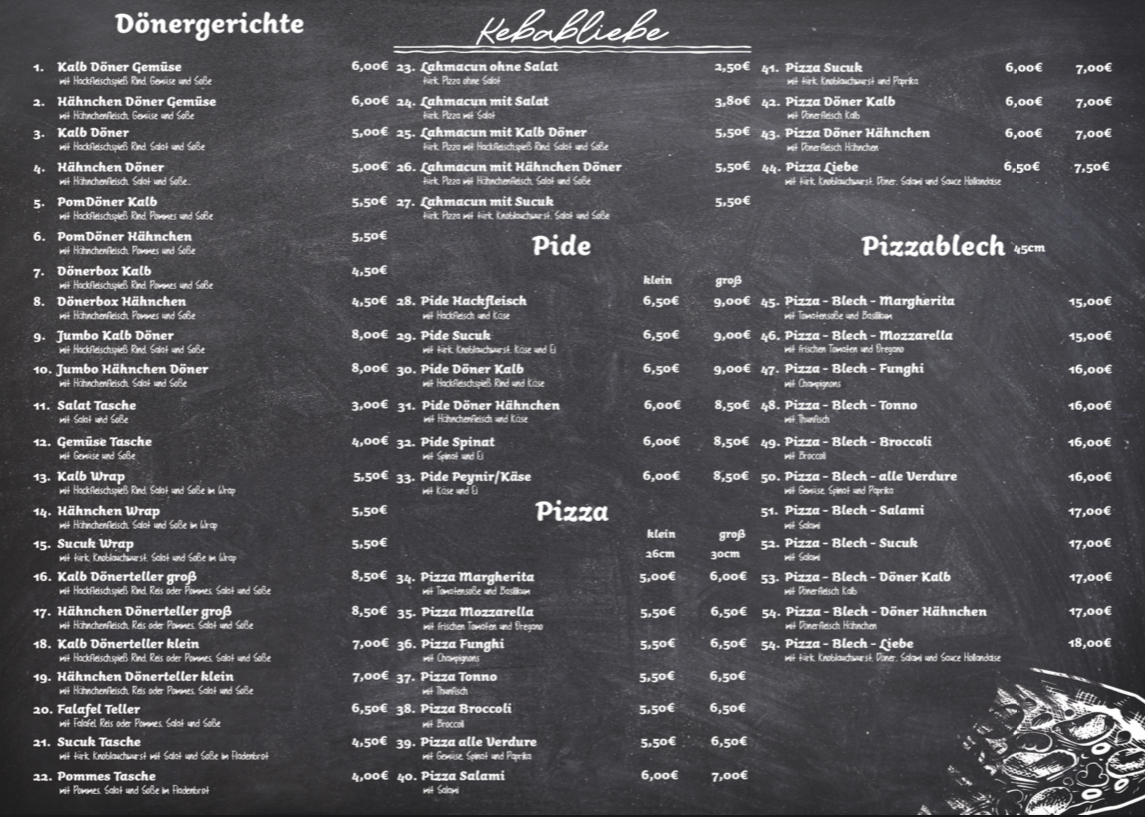 Dönergerichte
Kebabliebe
1. Kalb Döner Gemüse 6,00€
mit Hackfleischspieß Rind, Gemüse und Soße
2. Hähnchen Döner Gemüse 6,00€
mit Hähnchenfleisch, Gemüse und Soße
3. Kalb Döner 5,00€
mit Hackfleischspieß Rind, Salat und Soße
4. Hähnchen Döner 5,00€
mit Hähnchenfleisch, Salat und Soße..
5. PomDöner Kalb 5,50€
mit Hackfleischspieß Rind, Pommes und Soße
6. PomDöner Hähnchen 5,50€
mit Hähnchenfleisch, Pommes und Soße
7. Dönerbox Kalb 4,50€
mit Hackfleischspieß Rind, Pommes und Soße
8. Dönerbox Hähnchen 4,50€
mit Hähnchenfleisch, Pommes und Soße
9. Jumbo Kalb Döner 8,00€
mit Hackfleischspieß Rind, Salat und Soße
10. Jumbo Hähnchen Döner 8,00€
mit Hähnchenfleisch, Salat und Soße
11. Salat Tasche 3,00€
mit Salat und Soße
12. Gemüse Tasche 4,00€
mit Gemüse und Soße
13. Kalb Wrap 5,50€
mit Hackfleischspieß Rind, Salat und Soße im Wrap
14. Hähnchen Wrap 5,50€
mit Hähnchenfleisch, Salat und Soße im Wrap
15. Sucuk Wrap 5,50€
mit türk. Knoblauchwurst, Salat und Soße im Wrap
16. Kalb Dönerteller groß 8,50€
mit Hackfleischspieß Rind, Reis oder Pommes, Salat und Soße
17. Hähnchen Dönerteller groß 8,50€
mit Hähnchenfleisch, Reis oder Pommes, Salat und Soße
18. Kalb Dönerteller klein 7,00€
mit Hackfleischspieß Rind, Reis oder Pommes, Salat und Soße
19. Hähnchen Dönerteller klein 7,00€
mit Hähnchenfleisch, Reis oder Pommes, Salat und Soße
20. Falafel Teller 6,50€
mit Falafel, Reis oder Pommes, Salat und Soße
21. Sucuk Tasche 4,50€
mit türk. Knoblauchwurst mit Salat und Soße im Fladenbrot
22. Pommes Tasche 4,00€
mit Pommes, Salat und Soße im Fladenbrot
23. Lahmacun ohne Salat 2,50€
türk. Pizza ohne Salat
24. Lahmacun mit Salat 3,80€
türk. Pizza mit Salat
25. Lahmacun mit Kalb Döner 5,50€
türk. Pizza mit Hackfleischspieß Rind, Salat und Soße
26. Lahmacun mit Hähnchen Döner 5,50€
türk. Pizza mit Hähnchenfleisch, Salat und Soße
27. Lahmacun mit Sucuk 5,50€
türk. Pizza mit türk. Knoblauchwurst, Salat und Soße
Pide
klein groß
28. Pide Hackfleisch 6,50€ 9,00€
mit Hackfleisch und Käse
29. Pide Sucuk 6,50€ 9,00€
mit türk. Knoblauchwurst, Käse und Ei
30. Pide Döner Kalb 6,50€ 9,00€
mit Hackfleischspieß Rind und Käse
31. Pide Döner Hähnchen 6,00€ 8,50€
mit Hähnchenfleisch und Käse
32. Pide Spinat 6,00€ 8,50€
mit Spinat und Ei
33. Pide Peynir/Käse 6,00€ 8,50€
mit Käse und Ei
Pizza
klein groß
26cm 30cm
34. Pizza Margherita 5,00€ 6,00€
mit Tomatensoße und Basilikum
35. Pizza Mozzarella 5,50€ 6,50€
mit frischen Tomaten und Oregano
36. Pizza Funghi 5,50€ 6,50€
mit Champignons
37. Pizza Tonno 5,50€ 6,50€
mit Thunfisch
38. Pizza Broccoli 5,50€ 6,50€
mit Broccoli
39. Pizza alle Verdure 5,50€ 6,50€
mit Gemüse, Spinat und Paprika
40. Pizza Salami 6,00€ 7,00€
mit Salami
41. Pizza Sucuk 6,00€ 7,00€
mit türk. Knoblauchwurst und Paprika
42. Pizza Döner Kalb 6,00€ 7,00€
mit Dönerfleisch Kalb
43. Pizza Döner Hähnchen 6,00€ 7,00€
mit Dönerfleisch Hähnchen
44. Pizza Liebe 6,50€ 7,50€
mit türk. Knoblauchwurst, Döner, Salami und Sauce Hollandaise
Pizzablech 45cm
45. Pizza - Blech - Margherita 15,00€
mit Tomatensoße und Basilikum
46. Pizza - Blech - Mozzarella 15,00€
mit frischen Tomaten und Oregano
47. Pizza - Blech - Funghi 16,00€
mit Champignons
48. Pizza - Blech - Tonno 16,00€
mit Thunfisch
49. Pizza - Blech - Broccoli 16,00€
mit Broccoli
50. Pizza - Blech - alle Verdure 16,00€
mit Gemüse, Spinat und Paprika
51. Pizza - Blech - Salami 17,00€
mit Salami
52. Pizza - Blech - Sucuk 17,00€
mit Salami
53. Pizza - Blech - Döner Kalb 17,00€
mit Dönerfleisch Kalb
54. Pizza - Blech - Döner Hähnchen 17,00€
mit Dönerfleisch Hähnchen
54. Pizza - Blech - Liebe 18,00€
mit türk. Knoblauchwurst, Döner, Salami und Sauce Hollandaise